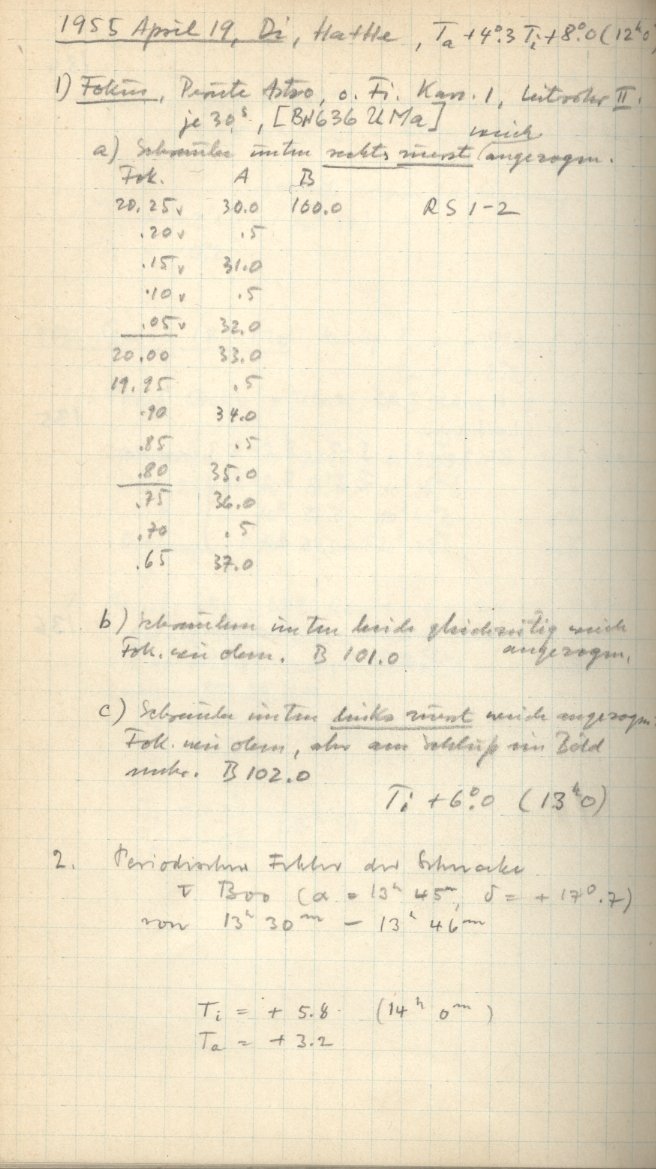 1955 April 19, Di, , Ta +4°.3 Ti +8°.0 (12h0
1) Fokus, Astro, o. Fi. Kass. 1, Leitrohr II.
je 30s, [BN636 UMa] weich
a) Schraube unten rechts zuerst angezogen.
Fok. A B
20.25v 30.0 100.0 RS 1-2
.20v .5
.15v 31.0
.10v .5
.05v 32.0
20.00 33.0
19.95 .5
.90 34.0
.85 .5
.80 35.0
.75 36.0
.70 .5
.65 37.0
b) Schrauben unten beide gleichzeitig weich
Fok. wie oben. B 101.0 angezogen.
c) Schraube unten links zuerst weich angezogen.
Fok. wie oben, aber am Schluß ein Bild
mehr. B 102.0
Ti +6°.0 (13h0)
2. Periodischer Fehler der Schnecke
τ Boo (α = 13h 45m, δ = +17°.7)
von 13h 30m – 13h 46m
Ti = + 5.8 (14h 0m)
Ta = + 3.2